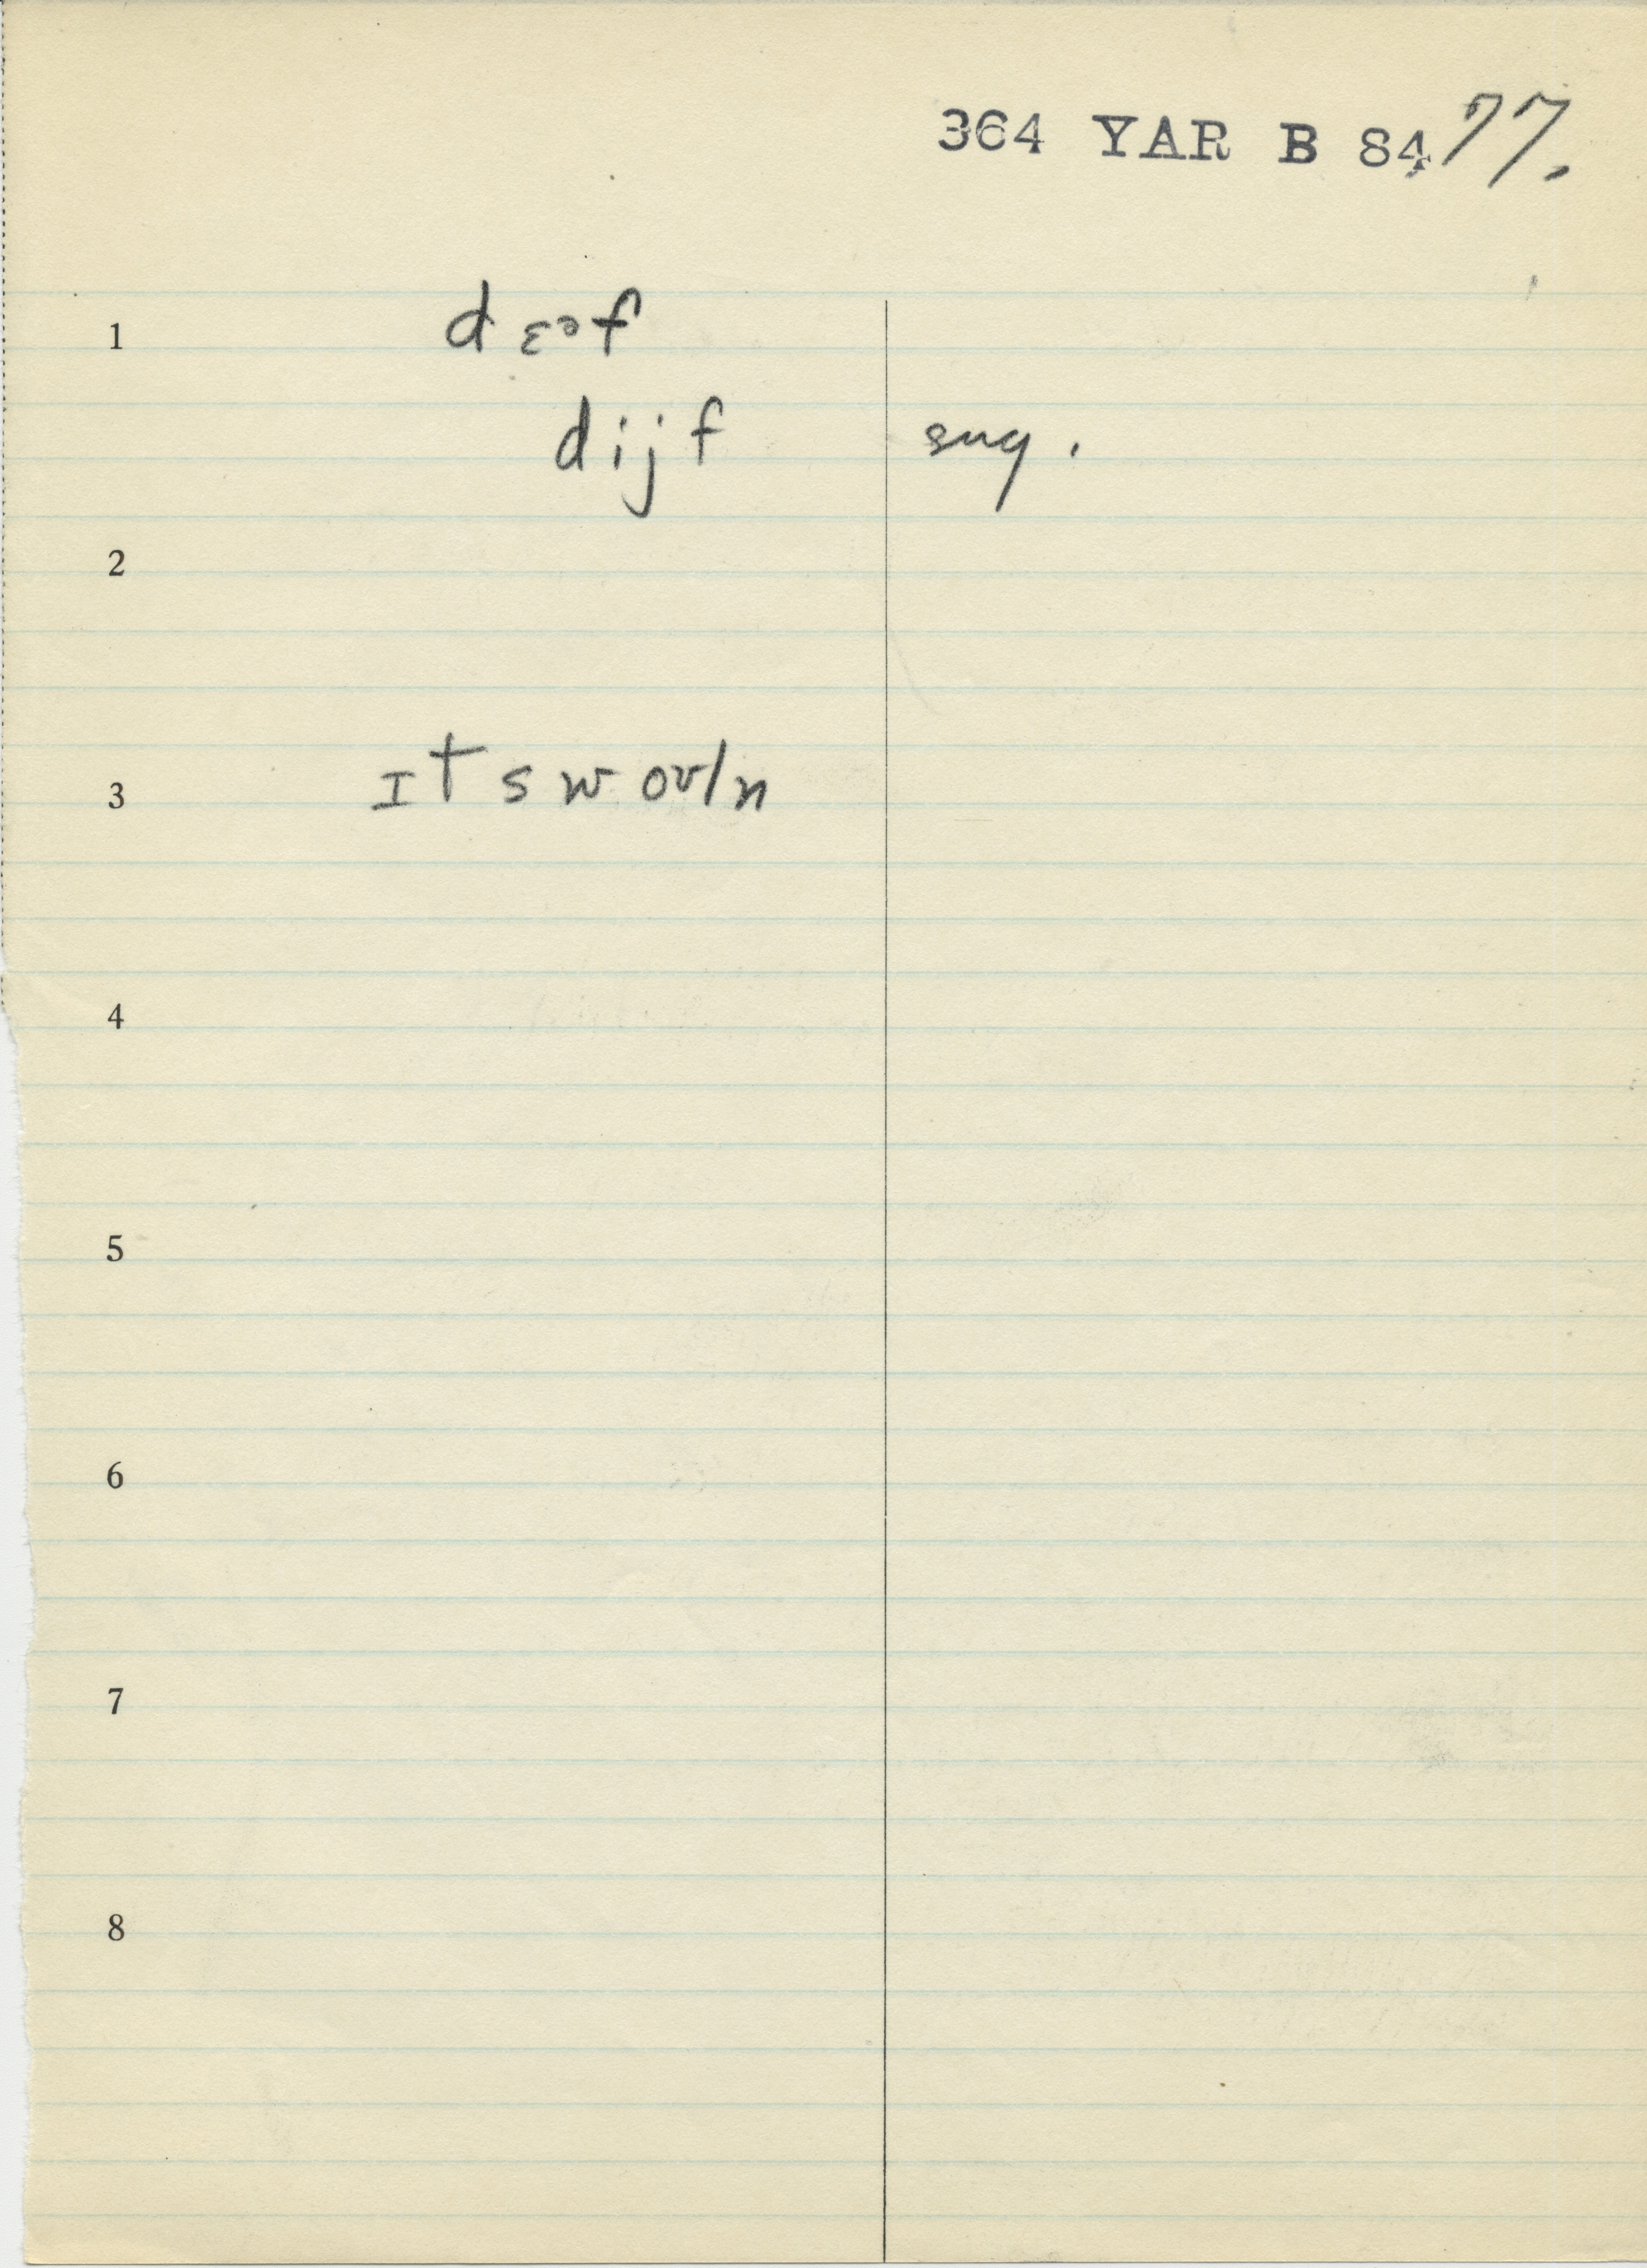 364 YAR B 84 77.
1 d ɛᵊf
dijf sug.
2
3 ɪt s w oʊ/n
4
5
6
7
8